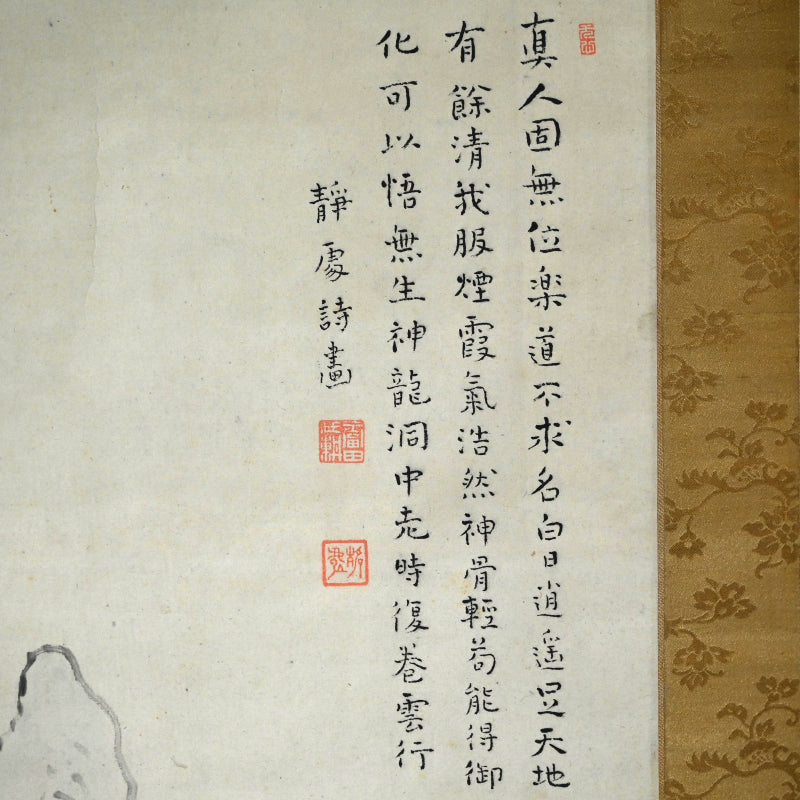 真人固無位楽道不求名白日逍遥足天地
有餘清我服煙霞氣浩然神骨輕苟能得御
化可以悟無生神龍洞中老時復巻雲行
靜處詩畫